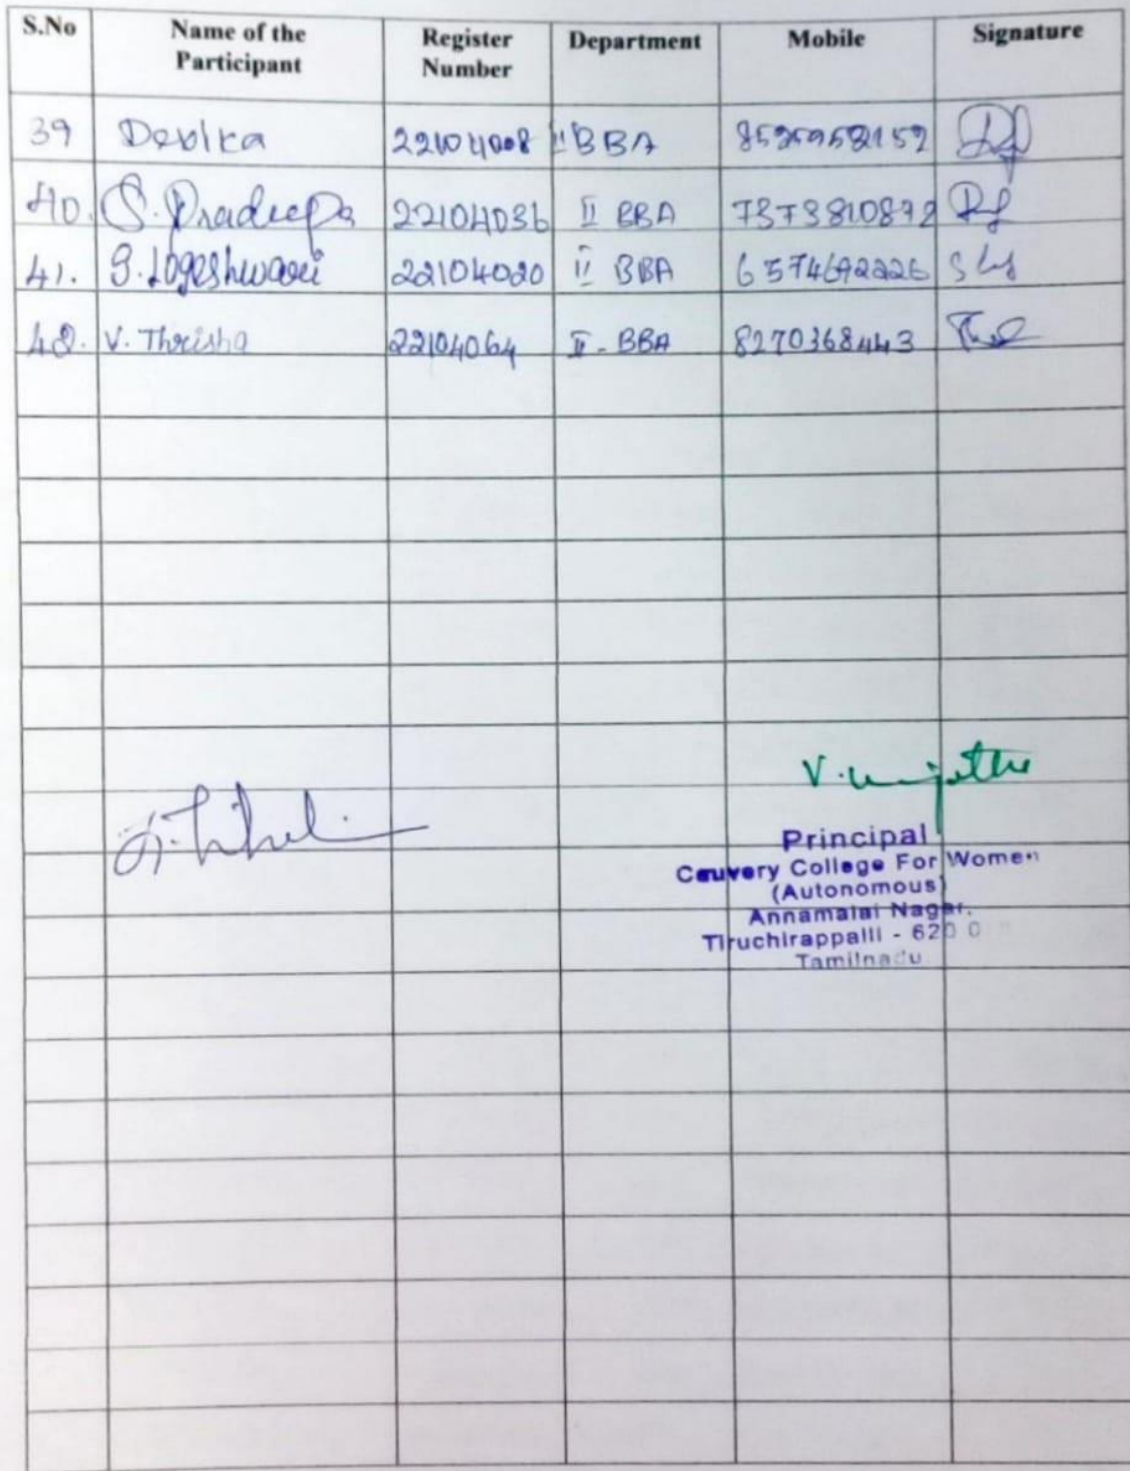 S.No Name of the Participant Register Number Department Mobile Signature
39 Devika 22104008 II BBA
40. S. Pradeepa 22104036 II BBA 7373810872
41. S. Logeshwari 22104020 II BBA 6574692226
42. V. Thrisha 22104064 II - BBA 8270368443
Principal
Cauvery College For Women
(Autonomous)
Annamalai Nagar.
Tiruchirappalli - 620 0
Tamilnadu